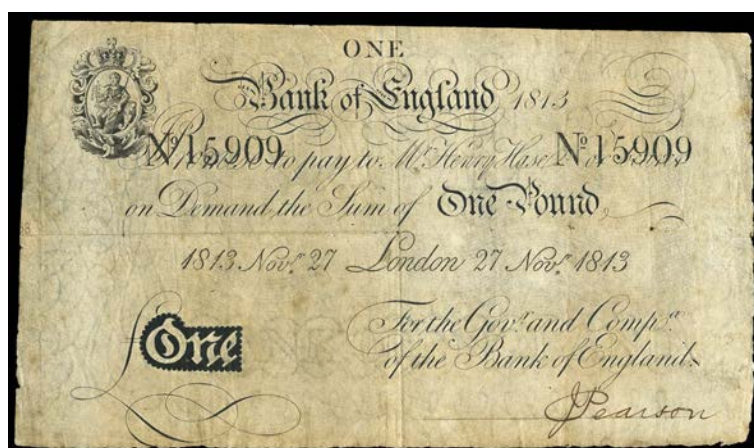 ONE
Bank of England 1813
Nº 15909 Nº 15909
Promise to pay to Mr. Henry Hase or
on Demand the Sum of One Pound
1813 Novr. 27 London 27 Novr. 1813
For the Govr. and Compa.
£One of the Bank of England.
J Pearson